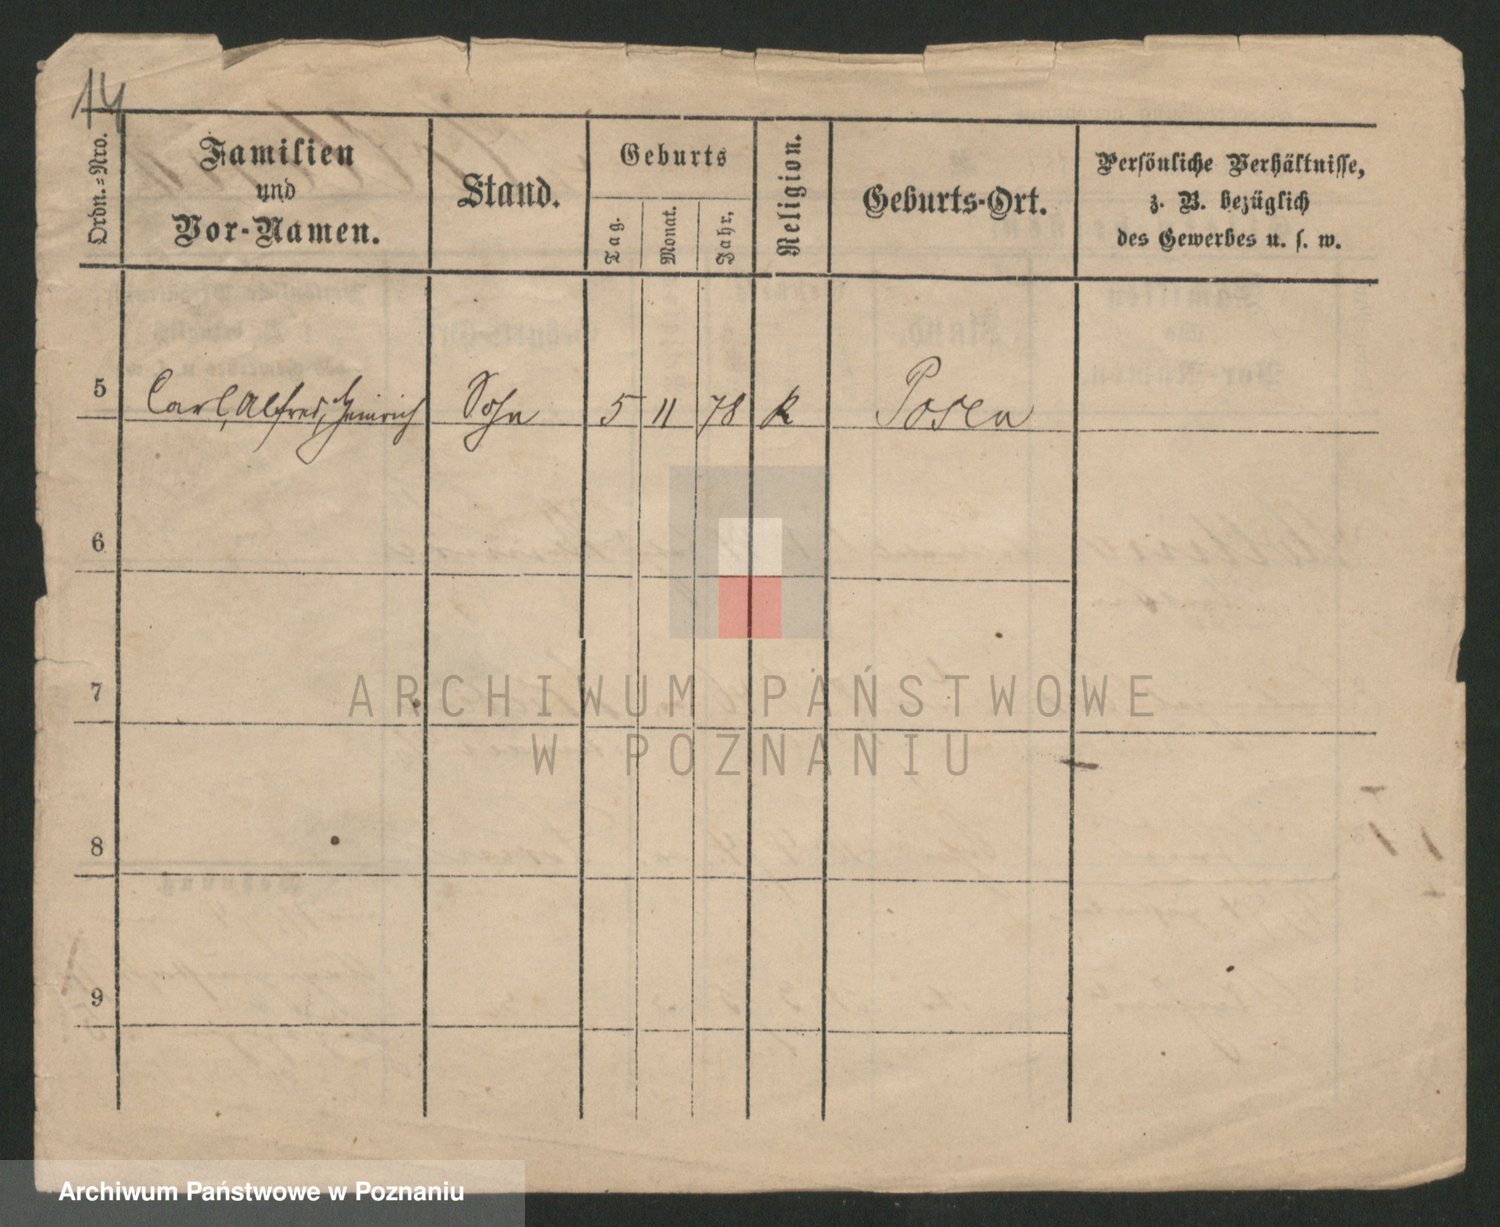 14
Ordn.-Nro.
Familien
und
Vor-Namen.
Stand.
Geburts
Tag.
Monat.
Jahr.
Religion.
Geburts-Ort.
Persönliche Verhältnisse,
z. B. bezüglich
des Gewerbes u. s. w.
5 Carl, Alfred, Heinrich Sohn 5 11 78 k Posen
6
7
8
9
ARCHIWUM PAŃSTWOWE
W POZNANIU
Archiwum Państwowe w Poznaniu